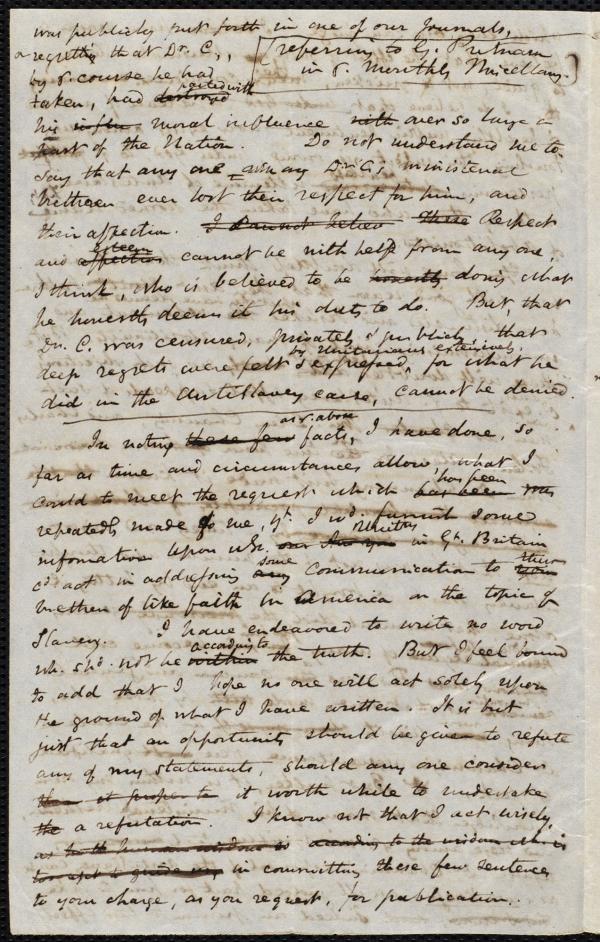 was publicly put forth in one of our Journals,
regretting that Dr. C., [referring to G. Putnam
by & course he had in & Monthly Miscellany.]
taken, had destroyed parted with
his influ moral influence with over so large a
part of the Nation. Do not understand me to
say that any one among Dr. C's ministerial
brethren ever lost their respect for him, and
their affection. I cannot believe these Respect
and affection esteem cannot be withheld from any one,
I think, who is believed to be honestly doing what
he honestly deems it his duty to do. But, that
Dr. C. was censured, privately & publicly, that
by Unitarians extensively,
deep regrets were felt & expressed, for what he
did in the Antislavery cause, cannot be denied.
as r. above
In noting these few facts, I have done, so
far as time and circumstances allow, what I
could to meet the request which has been has been was
repeatedly made to me, yt. I wd. furnish some
information upon wh. our Unitns in Gt. Britain
cd. act in addressing any some communication to their
brethren of like faith in America on the topic of
Slavery. I have endeavored to write no word
wh. shd. not be within according to the truth. But I feel bound
to add that I hope no one will act solely upon
the ground of what I have written. It is but
just that an opportunity should be given to refute
any of my statements, should any one consider
it proper to it worth while to undertake
the a refutation. I know not that I act wisely,
according to the wisdom who is
in committing these few sentences
to your charge, as you request, for publication.